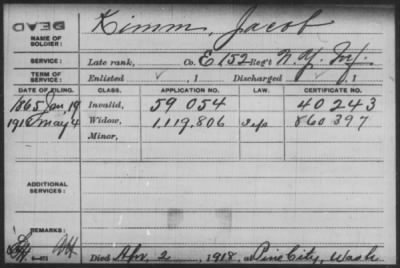 DEAD
Kimm, Jacob
NAME OF SOLDIER:
SERVICE: Late rank, Co. E 152 Reg't N.Y. Inf.
TERM OF SERVICE: Enlisted , 1 Discharged , 1
DATE OF FILING. CLASS. APPLICATION NO. LAW. CERTIFICATE NO.
1865 Jan, 19 Invalid, 59 054 40 243
1918 May 4 Widow, 1,119,806 860 397
Minor,
ADDITIONAL SERVICES:
REMARKS:
Died Apr. 2, 1918, at Pine City, Wash